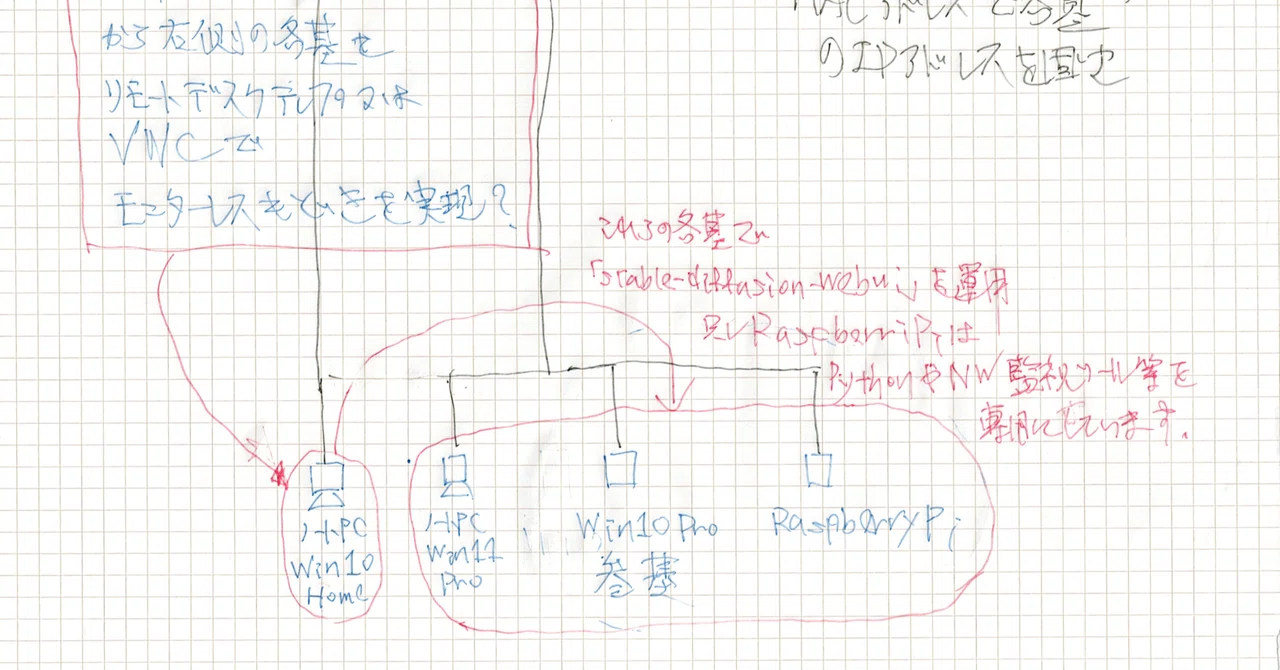 から右側の各基を
リモートデスクテレプ又は
VNCで
モニターレスもどきを実現?
のIPアドレスを固定
これらの各基で
「stable-diffusion-webui」を運用
但しRaspberriPiは
PythonやNW監視ツール等を
専用にしています.
ノートPC
Win10
Home
ノートPC
Win11
Pro
Win10Pro
参基
RaspberryPi